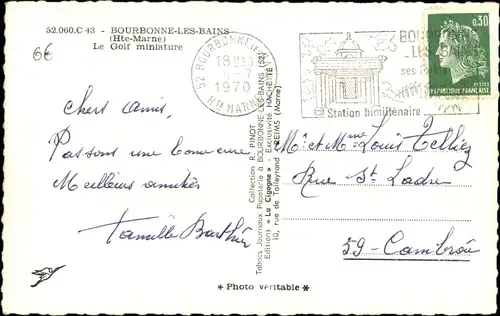 52.060.C 43 - BOURBONNE-LES-BAINS
(Hte-Marne)
Le Golf miniature
6€
52 BOURBONNE-LES-BAINS
18H30
-7
1970
HTE MARNE
BOURBONNE
LES BAINS
ses
Station bimillénaire
0,30
POSTES
REPUBLIQUE FRANCAISE
Chers Amis,
Passons une bonne cure
Meilleures amitiés
Famille Barthier
Collection R. PINOT
Tabacs Journaux Papeterie à BOURBONNE-LES-BAINS (52)
Editions « La Cigogne » - Exclusivité HACHETTE
10, rue de Talleyrand - REIMS (Marne)
Mr et Mme Louis Telliez
Rue St Ladre
59 - Cambrai
* Photo véritable *